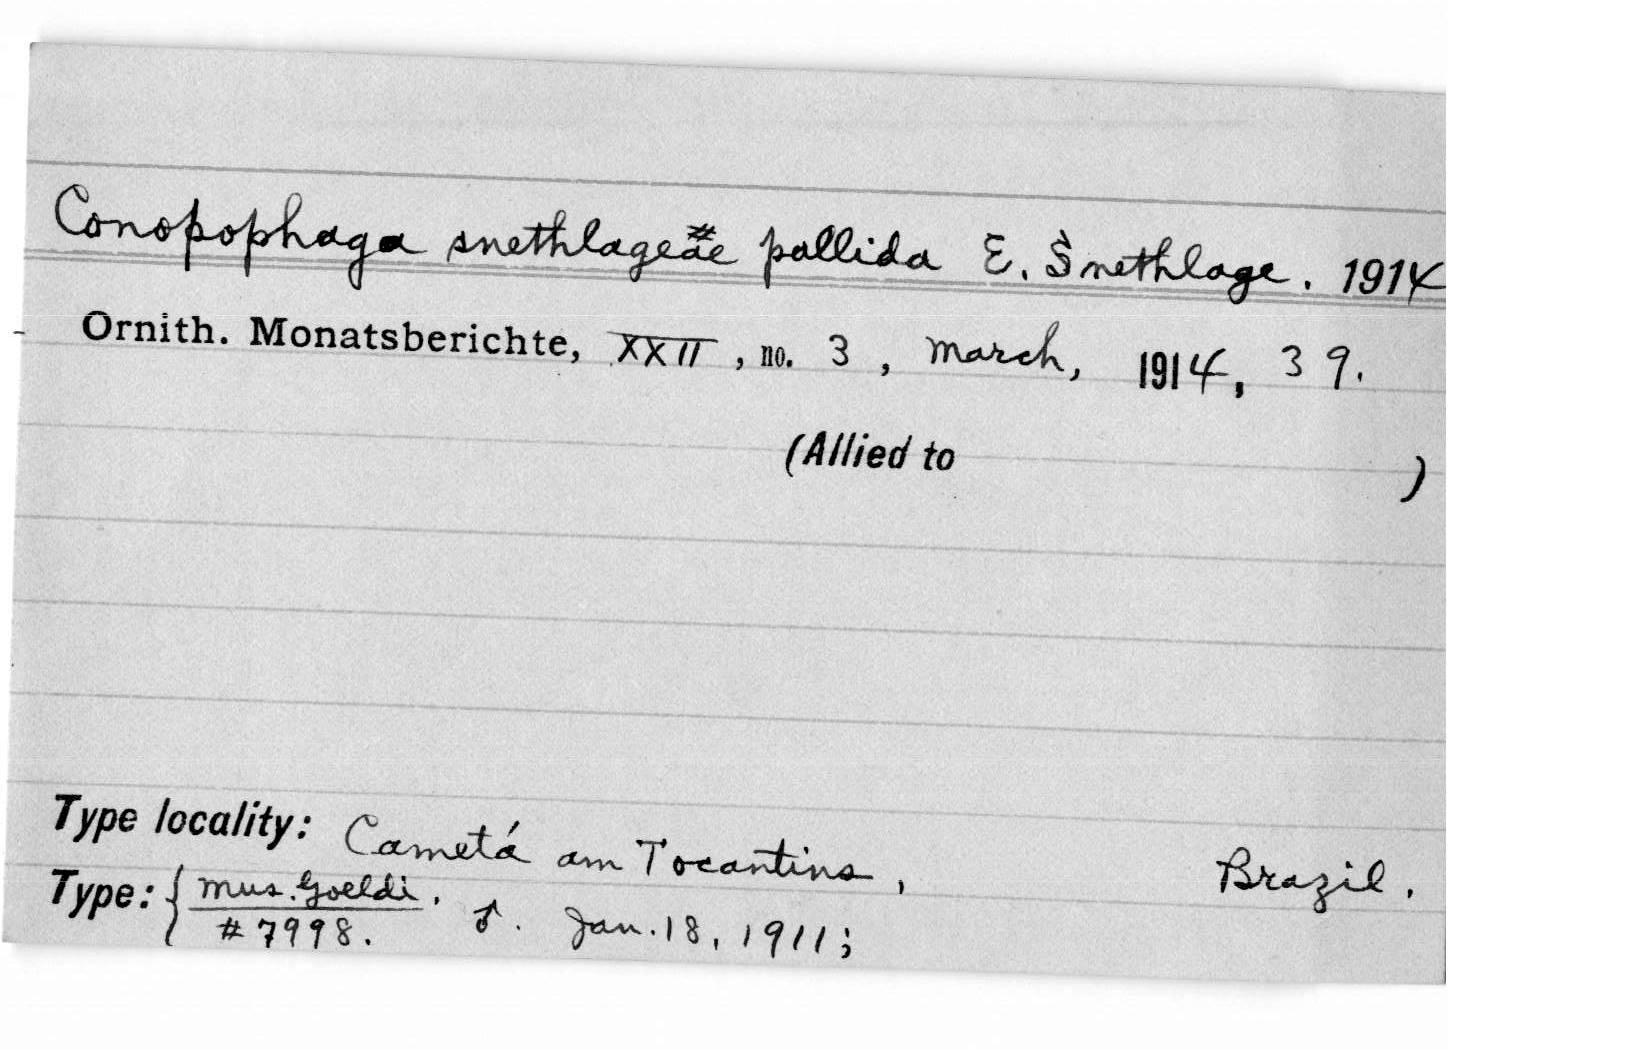 Conopophaga snethlageæ pallida E. Snethlage. 1914
Ornith. Monatsberichte, XXII, no. 3, March, 1914, 39.
(Allied to )
Type locality: Cametá am Tocantins, Brazil.
Type: { Mus. Goeldi. ♂. Jan. 18, 1911;
#7998.